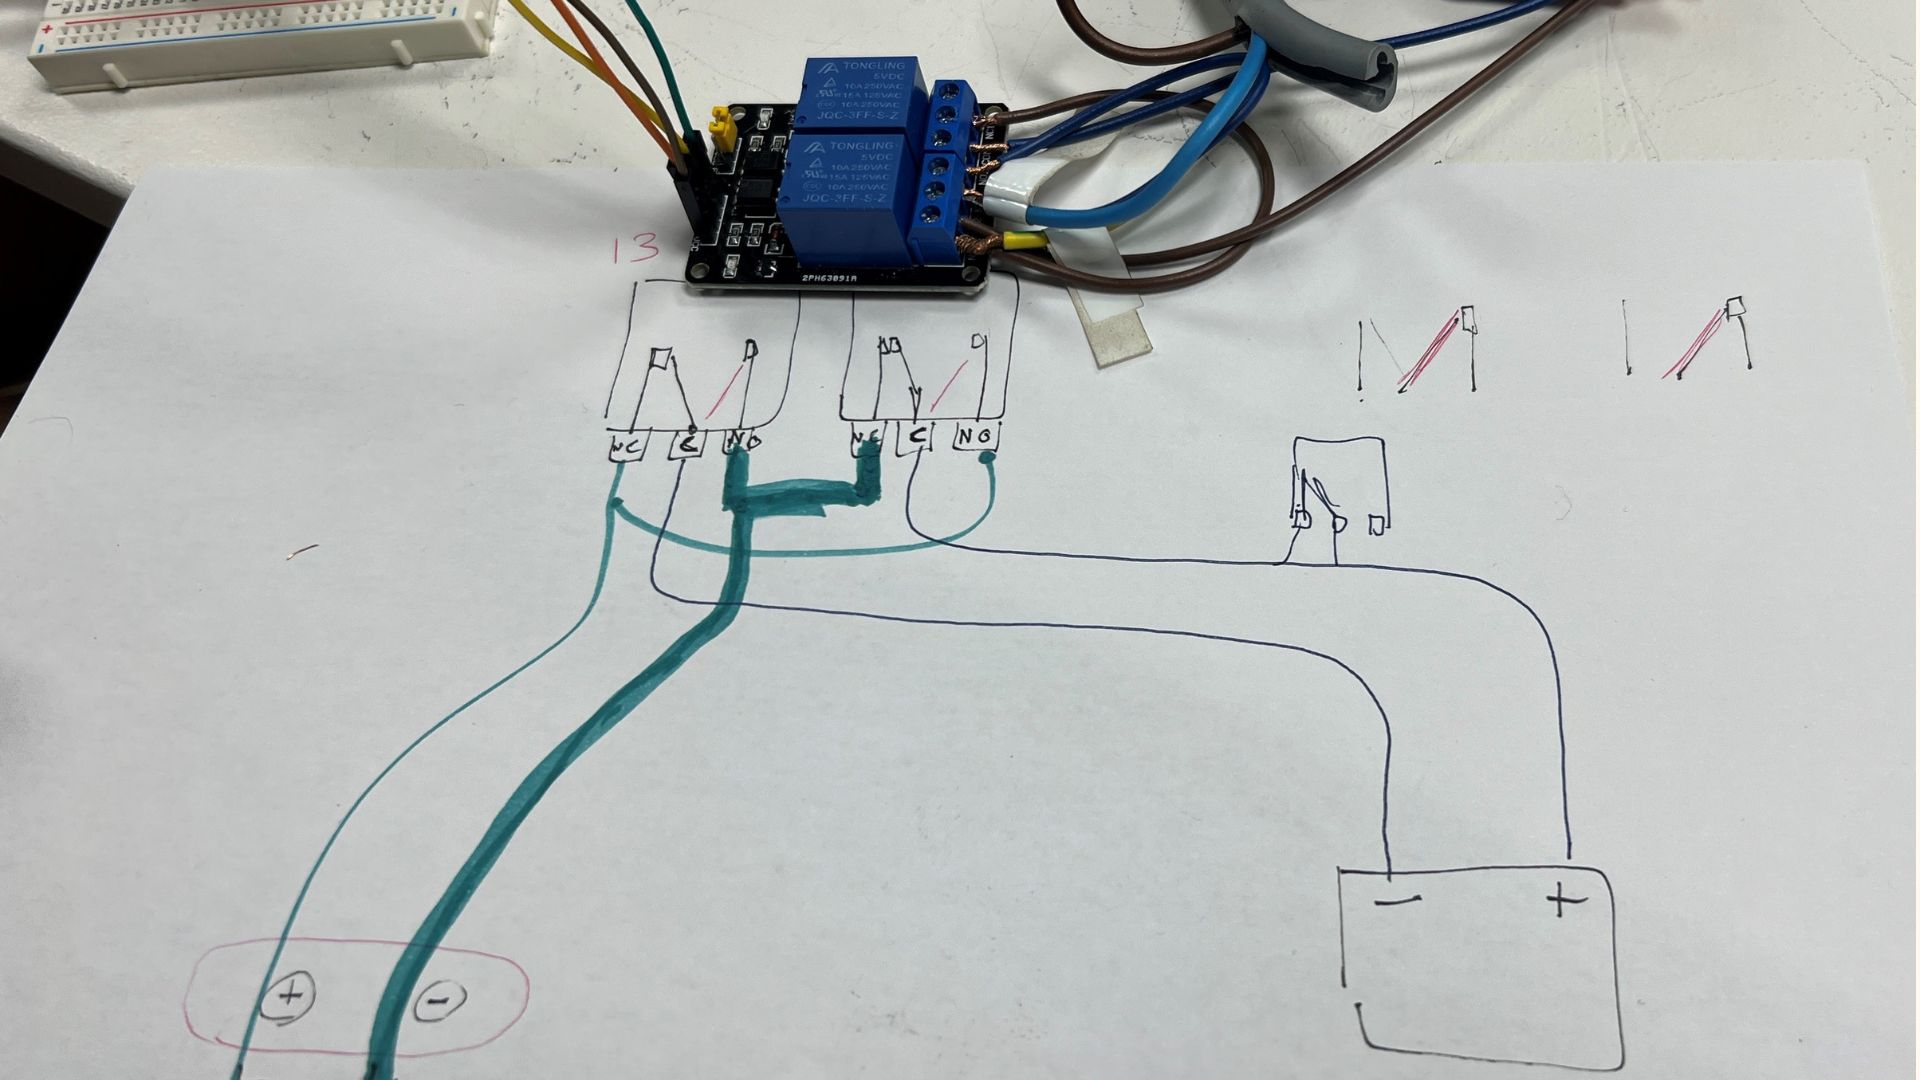 TONGLING
5VDC
10A 250VAC
15A 125VAC
10A 250VAC
JQC-3FF-S-Z
TONGLING
5VDC
10A 250VAC
15A 125VAC
10A 250VAC
JQC-3FF-S-Z
2PH63091A
13
NC C NO NC C NO
- +
+ -